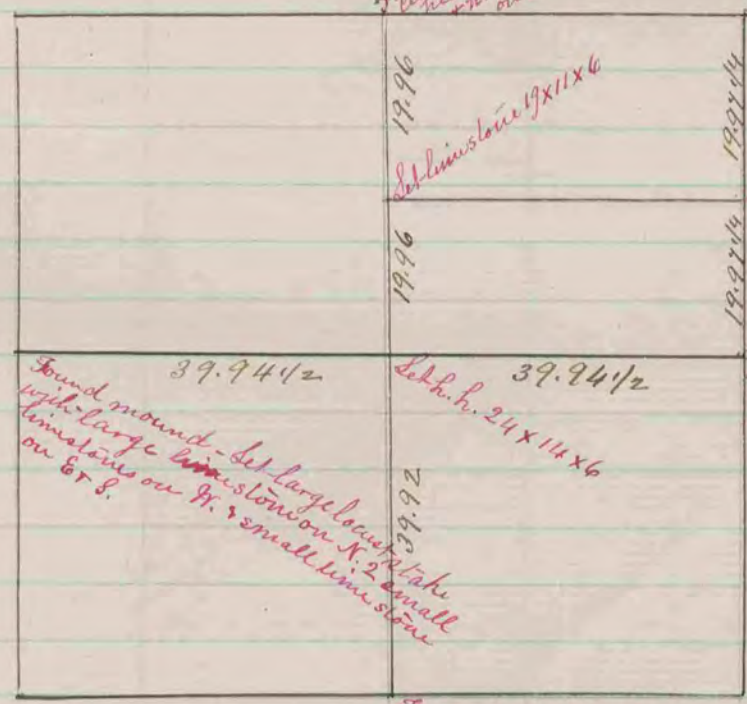 19.96
Set limestone 19x11x6
19.97 1/4
19.96
19.97 1/4
39.94 1/2
39.94 1/2
Found mound - Set large locust stake
with large limestone on N. 2 small
limestones on W. & small limestone
on E & S.
24 x 14 x 6
39.92